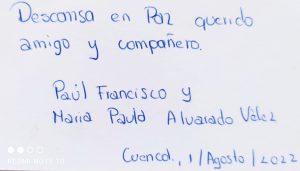 Descansa en Paz querido
amigo y compañero.
Paúl Francisco y
María Paula Alvarado Vélez
Cuenca, 1/Agosto/2022
REDMI NOTE 10